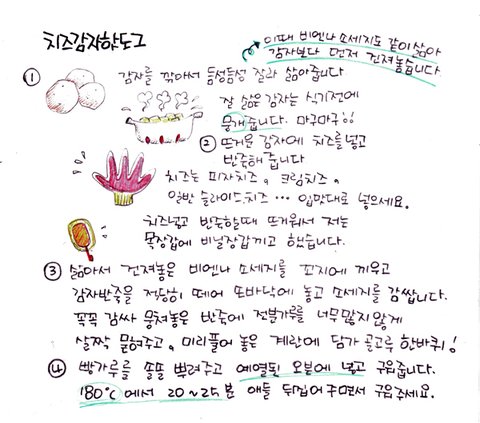 치즈감자핫도그
이때 비엔나 소세지도 같이 삶아
감자보다 먼저 건져놓습니다
① 감자를 깎아서 듬성듬성 잘라 삶아줍니다
잘 삶은 감자는 식기전에
뭉개줍니다. 마구마구!!
② 뜨거운 감자에 치즈를 넣고
반죽해 줍니다
치즈는 피자치즈, 크림치즈,
일반 슬라이드치즈 … 입맛대로 넣으세요.
치즈넣고 반죽할때 뜨거워서 저는
목장갑에 비닐장갑끼고 했습니다.
③ 삶아서 건져놓은 비엔나 소세지를 꼬지에 끼우고
감자반죽을 적당히 떼어 또바닥에 놓고 소세지를 감쌉니다.
꼭꼭 감싸 뭉쳐놓은 반죽에 전분가루를 너무많지않게
살짝 묻혀주고, 미리풀어 놓은 계란에 담가 골고루 한바퀴!
④ 빵가루를 솔솔 뿌려주고 예열된 오븐에 넣고 구워줍니다.
180℃에서 20~25분 애들 뒤집어주면서 구워주세요.